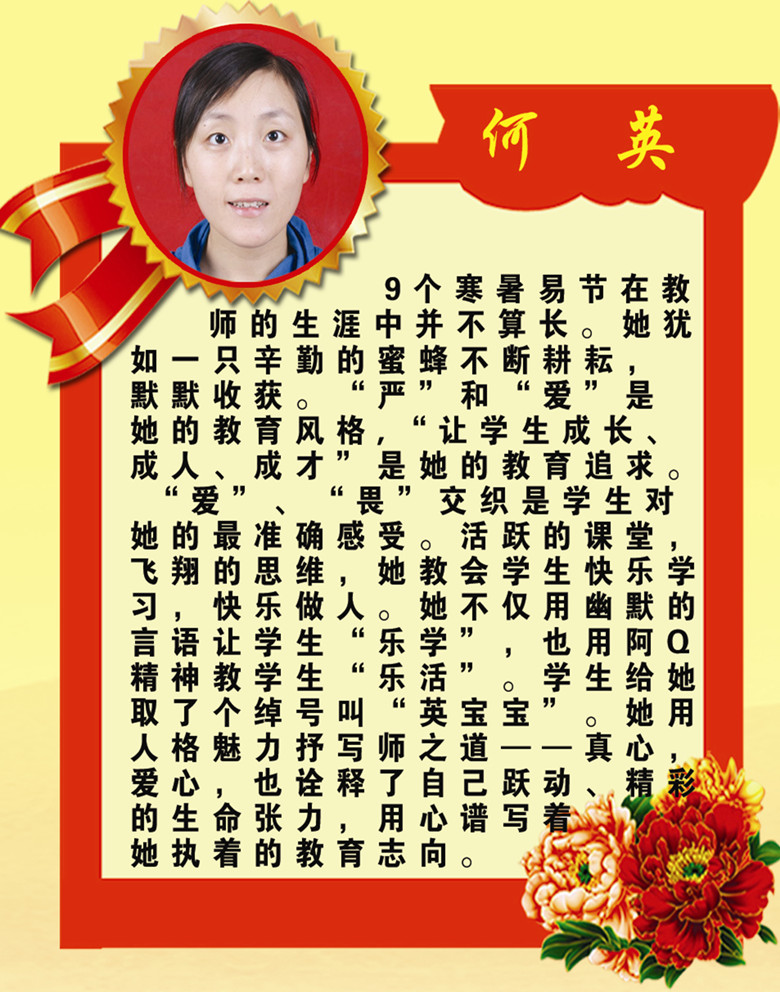 何英
9个寒暑易节在教
师的生涯中并不算长。她犹
如一只辛勤的蜜蜂不断耕耘，
默默收获。“严”和“爱”是
她的教育风格，“让学生成长、
成人、成才”是她的教育追求。
“爱”、“畏”交织是学生对
她的最准确感受。活跃的课堂，
飞翔的思维，她教会学生快乐学
习，快乐做人。她不仅用幽默的
言语让学生“乐学”，也用阿Q
精神教学生“乐活”。学生给她
取了个绰号叫“英宝宝”。她用
人格魅力抒写师之道——真心，
爱心，也诠释了自己跃动、精彩
的生命张力，用心谱写着
她执着的教育志向。